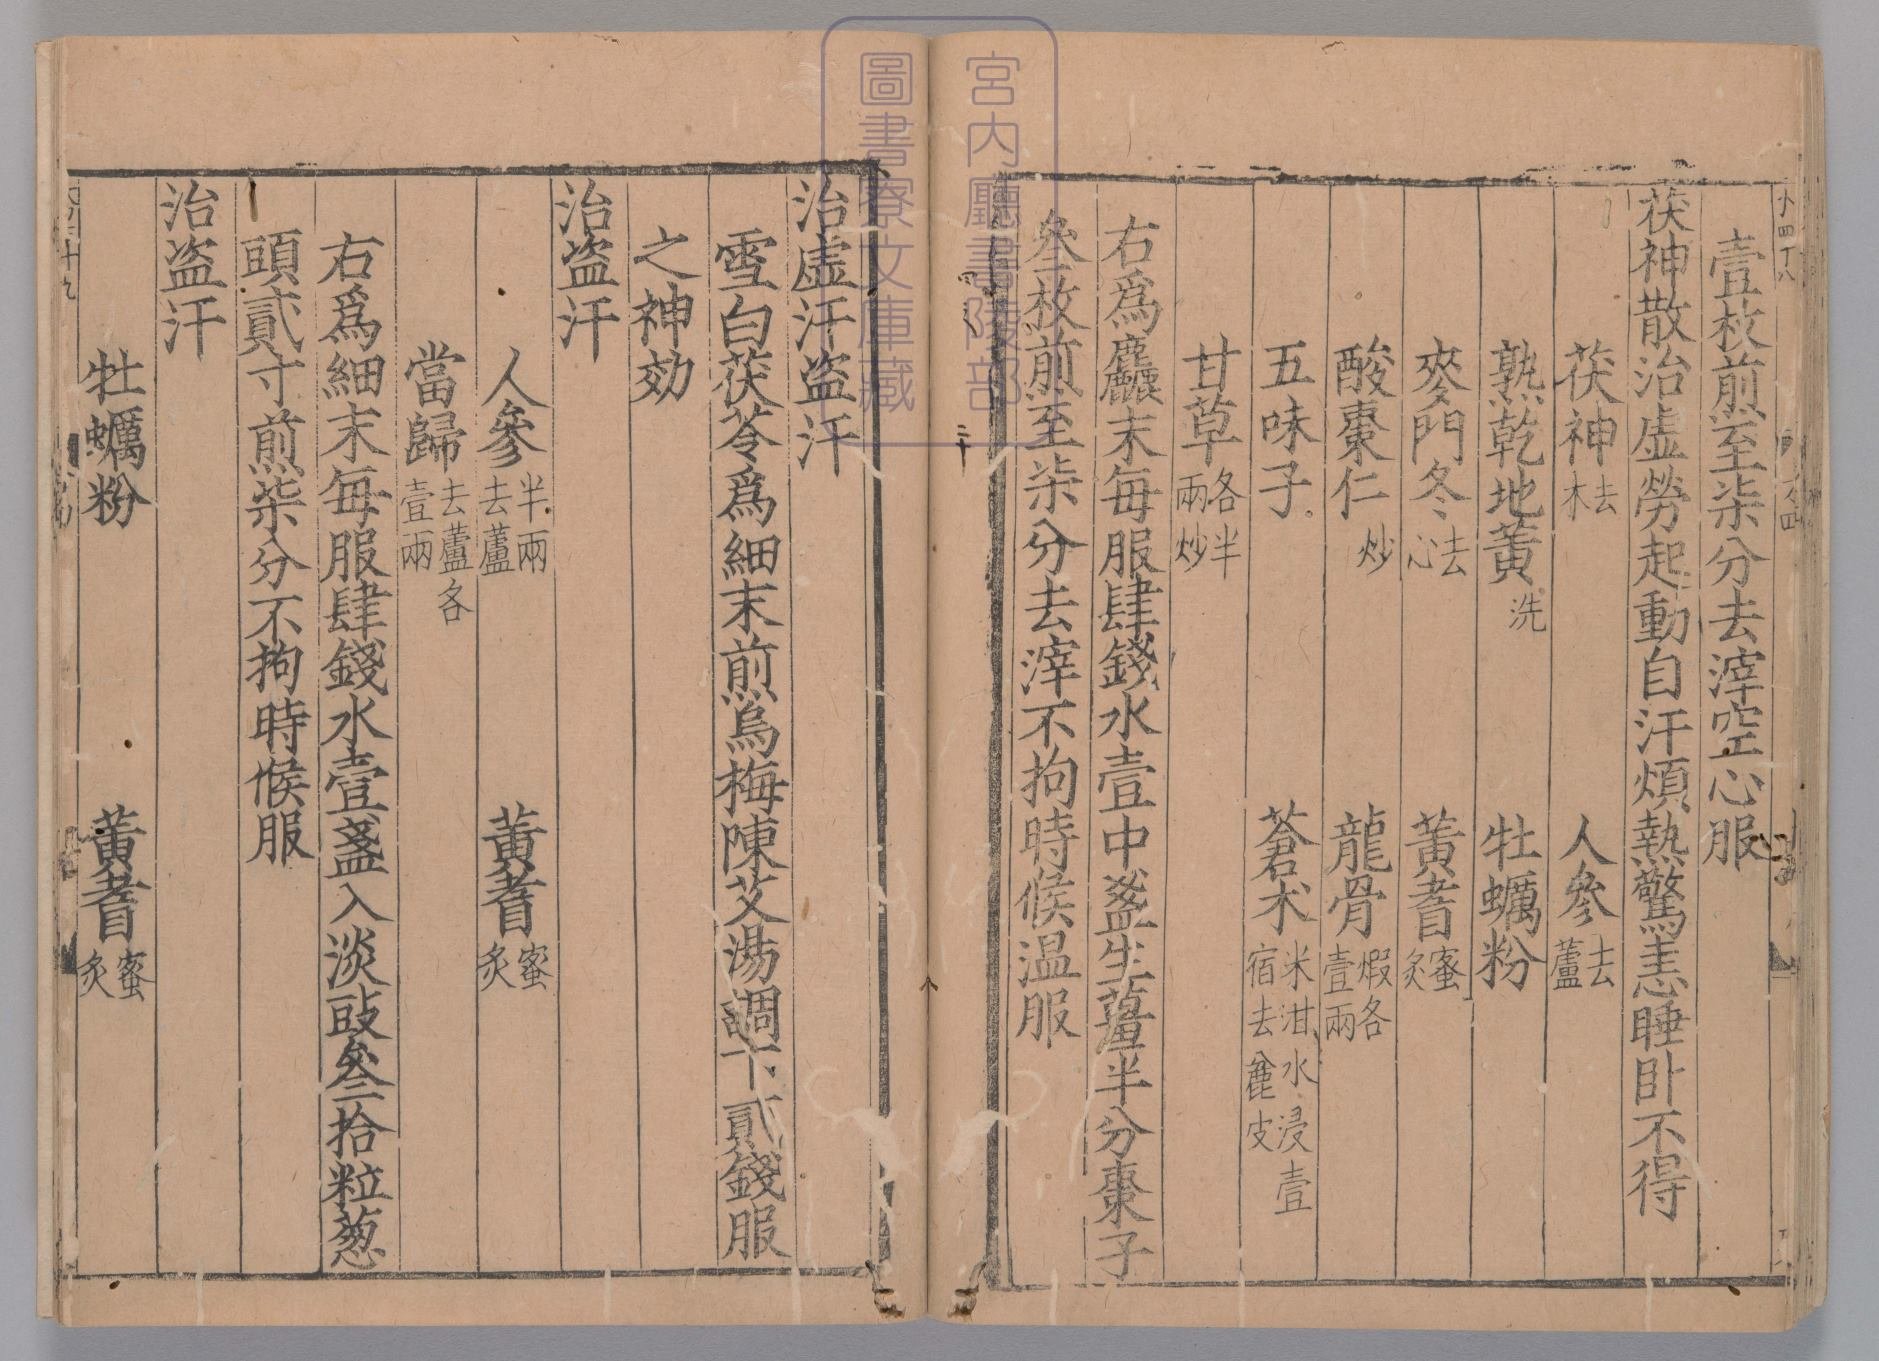 壹枚煎至柒分去滓空心服
茯神散治虛勞起動自汗煩熱驚恚睡臥不得
茯神去木　人參去蘆
熟乾地黃洗　牡蠣粉
麥門冬去心　黃耆蜜炙
酸棗仁炒　龍骨煅各壹兩
五味子　蒼术米泔水浸壹宿去麄皮
甘草各半兩炒
右爲麤末每服肆錢水壹中盞生薑半分棗子
叄枚煎至柒分去滓不拘時候温服
治虛汗盜汗
雪白茯苓爲細末煎烏梅陳艾湯調下貳錢服
之神効
治盜汗
人參半兩去蘆　黃耆蜜炙
當歸去蘆各壹兩
右爲細末每服肆錢水壹盞入淡豉叄拾粒葱
頭貳寸煎柒分不拘時候服
治盜汗
牡蠣粉　黃耆蜜炙
宮内廳書陵部
圖書寮文庫藏